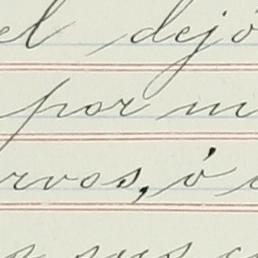 el dejó
por m
rvos, ó
sus